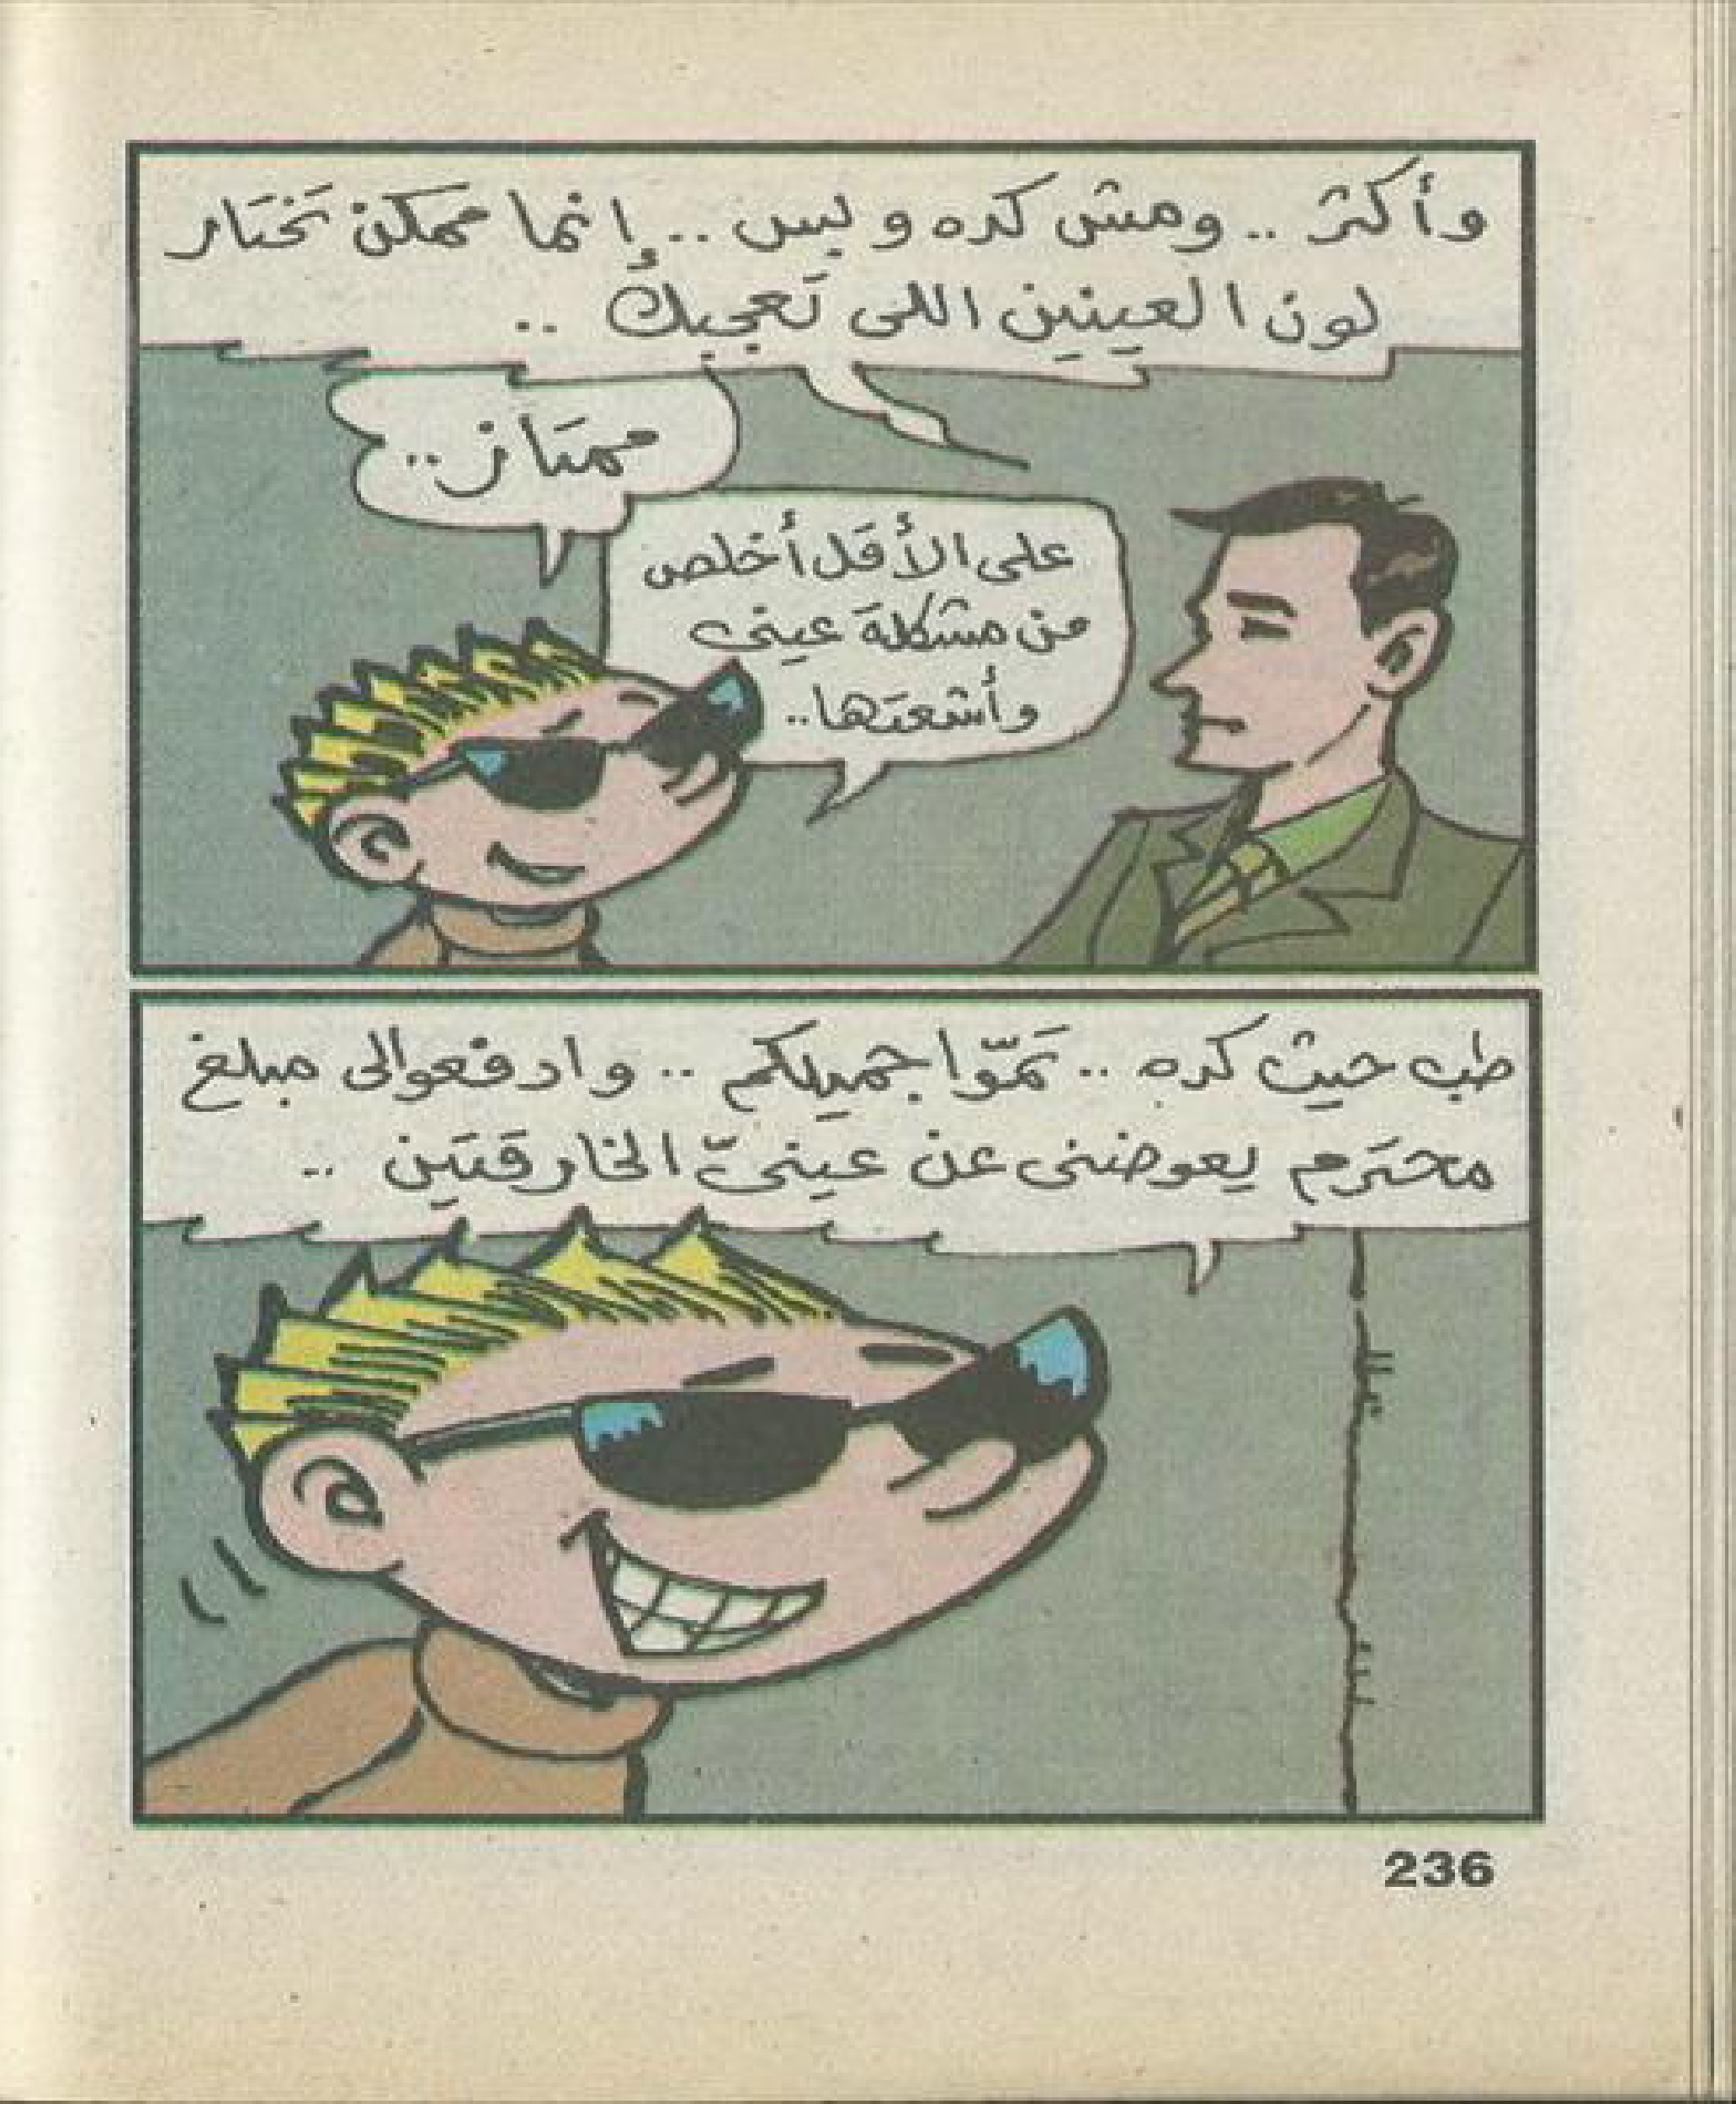 وأكثر .. ومش كده وبس .. إنما ممكن تختار
لون العينين اللى تعجبك ..
ممتاز ..
على الأقل أخلص
من مشكلة عينى
وأشعتها ..
طب حيث كده .. تمّوا جميلكم .. وادفعوا لى مبلغ
محترم يعوضنى عن عينىّ الخارقتين ..
236